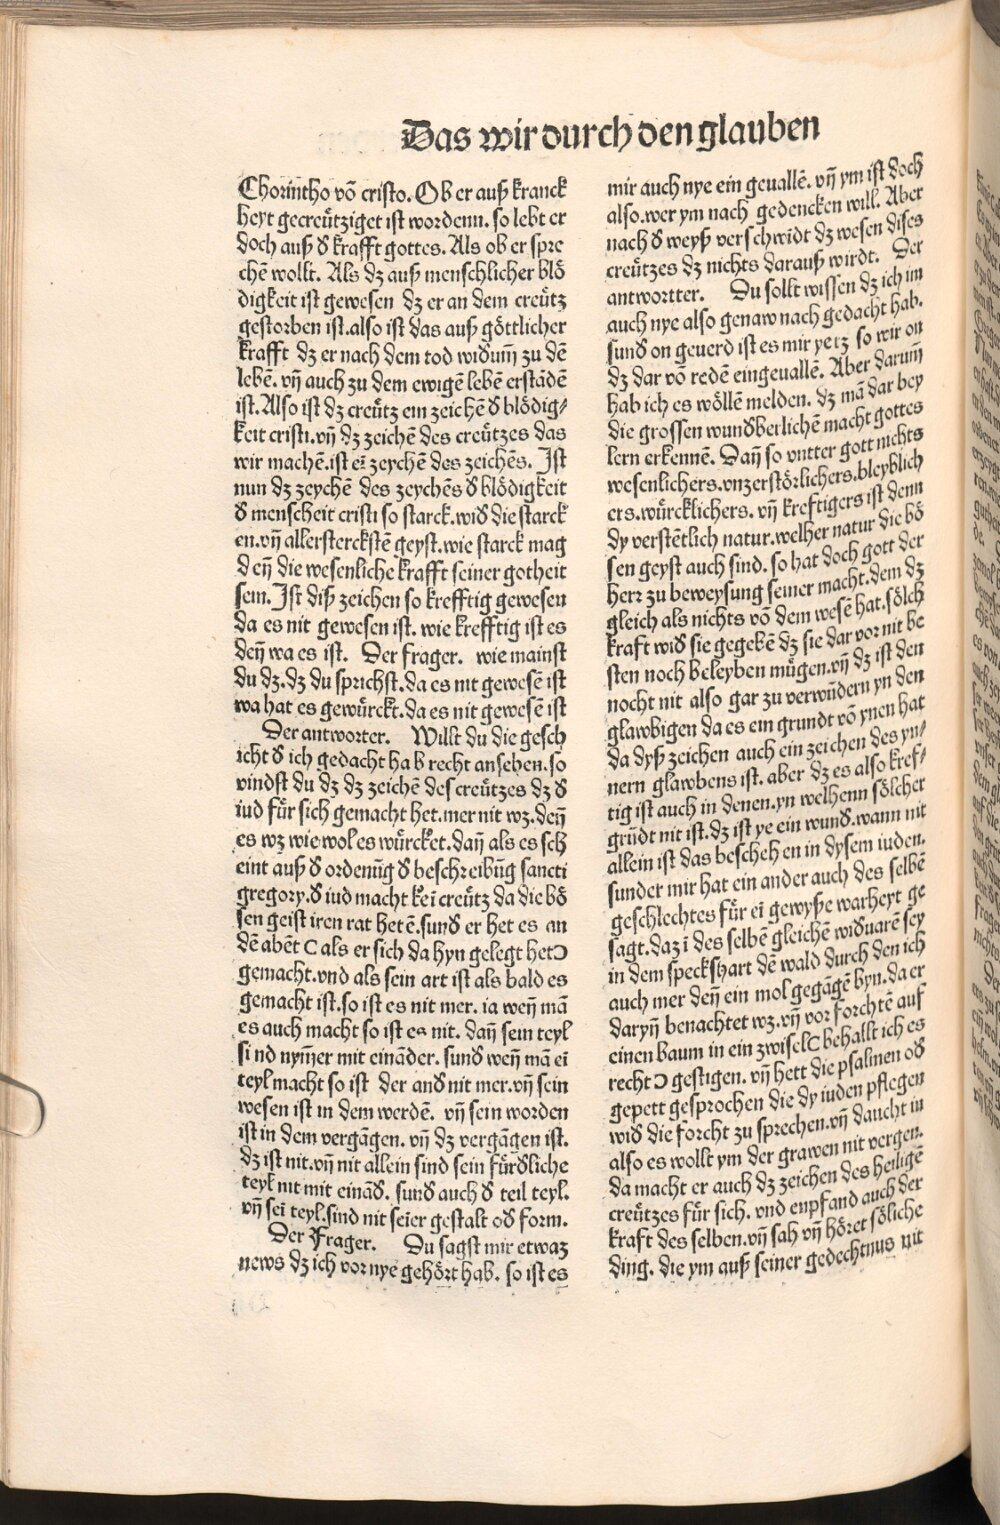 Das wir durch den glauben
Chorintho võ cristo. Ob er auß kranck
heyt gecreütziget ist wordenn. so lebt er
doch auß ď krafft gottes. Als ob er spre
chē wollt. Als dz auß menschlicher blö
digkeit ist gewesen dz er an dem creütz
gestorben ist. also ist das auß göttlicher
krafft dz er nach dem tod widuɱ̄ zu dē
lebē. vn̄ auch zu dem ewigē lebē erstādē
ist. Also ist dz creütz ein zeichē ď blödig⸗
keit cristi. vn̄ dz zeichē des creützes das
wir machē. ist eī zeychē des zeichēs. Ist
nun dz zeychē des zeychēs ď blödigkeit
ď menscheit cristi so starck. wiď die starck
en. vn̄ allersterckstē geyst. wie starck mag
den̄ die wesenliche krafft seiner gotheit
sein. Ist diß zeichen so krefftig gewesen
da es nit gewesen ist. wie krefftig ist es
den̄ wa es ist. Der frager. wie mainst
du dz. dz du sprichst. da es nit gewesē ist
wa hat es gewürckt. da es nit gewesē ist
Der antworter. Willt du die gesch
icht ď ich gedacht hab recht ansehen. so
vindst du dz dz zeichē des creützes dz ď
iud für sich gemacht het. mer nit wz. den̄
es wz wie wol es würcket. dan̄ als es sch
eint auß ď ordenūg ď beschreibūg sancti
gregory. ď iud macht keī creütz da die bö
sen geist iren rat hetē. sunď er het es an
dē abēt ( als er sich da hyn gelegt het)
gemacht. vnd als sein art ist als bald es
gemacht ist. so ist es nit mer. ia wen̄ mā
es auch macht so ist es nit. dan̄ sein teyl
sind nym̄er mit eināder. sunď wen̄ mā eī
teyl macht so ist der anď nit mer. vn̄ sein
wesen ist in dem werdē. vn̄ sein worden
ist in dem vergāgen. vn̄ dz vergāgen ist.
dz ist nit. vn̄ nit allein sind sein fürďliche
teyl nit mit eināď. sunď auch ď teil teyl.
vn̄ sei teyl. sind nit seīer gestalt oď form.
Der Frager. Du sagst mir etwaz
news dz ich vor nye gehört hab. so ist es
mir auch nye ein geuallē. vn̄ ym ist doch
also. wer ym nach gedencken will. Aber
nach ď weyß verschwīdt dz wesen dises
creützes dz nichts darauß wirdt. Der
antwortter. Du sollt wissen dz ich im
auch nye also genaw nach gedacht hab.
sunď on geuerd ist es mir yetz so wir on
dz dar vō redē eingeuallē. Aber darum̄
hab ich es wöllē melden. dz mā dar bey
die grossen wunďberlichē macht gottes
lern erkennē. Dan̄ so vntter gott nichts
wesenlichers. vnzerstörlichers. bleyblich
ers. würcklichers. vn̄ kreftigers ist denn
dy verstētlich natur. welher natur die bö
sen geyst auch sind. so hat doch gott der
herr zu beweysung seiner macht. dem dz
gleich als nichts vō dem wesē hat. sölch
kraft wiď sie gegebē dz sie dar vor nit be
sten noch beleyben mügen. vn̄ dz ist den
nocht nit also gar zu verwūdern yn den
glawbigen da es ein grundt vō ynen hat
da dyß zeichen auch ein zeichen des yn⸗
nern glawbens ist. aber dz es also kref⸗
tig ist auch in denen. yn welhenn sölcher
grūdt nit ist. dz ist ye ein wunď. wann nit
allein ist das beschehen in dysem iuden.
sunder mir hat ein ander auch des selbē
geschlechtes für eī gewyße warheyt ge
sagt. daz ī des selbē gleichē widuarē sey
in dem speckshart dē wald durch den ich
auch mer den̄ ein mol gegāgē byn. da er
daryn̄ benachtet wz. vn̄ vor forchtē auf
einen baum in ein zwisel( behallt ich es
recht ) gestigen. vn̄ hett die psalmen oď
gepett gesprochen die dy iuden pflegen
wiď die forcht zu sprechen. vn̄ daucht in
also es wollt ym der grawen nit vergen.
da macht er auch dz zeichen des heiligē
creützes für sich. vnd enpfand auch der
kraft des selben. vn̄ sah vn̄ höret söliche
ding. die ym auß seiner gedechtnus nit